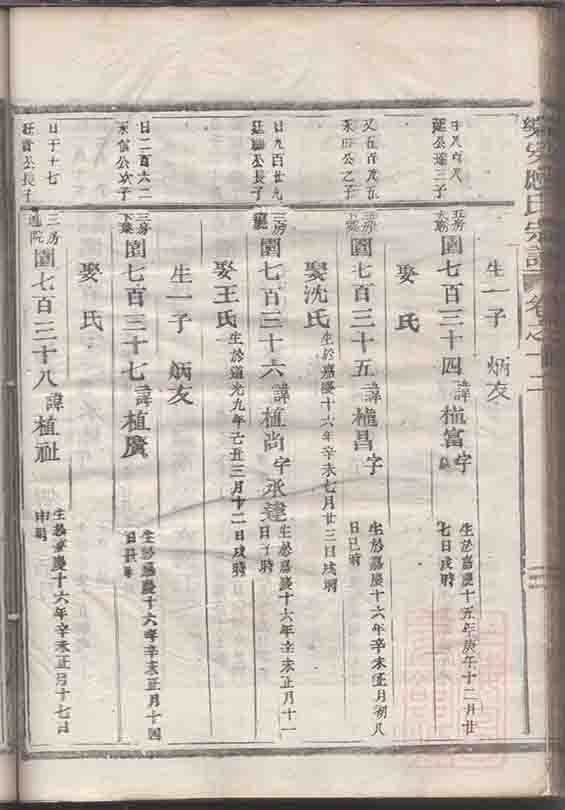 應氏宗譜 卷之十二
生一子 炳友
日八百八
延公遙三子
五房
園七百三十四 諱植富 字
生於嘉慶十五年庚午十二月廿
七日戌時
娶 氏
又五百九五
公之子
三房
園七百三十五 諱植昌 字
生於嘉慶十六年辛未正月初八
日巳時
娶沈氏 生於嘉慶十六年辛未七月廿三日戌時
日九百廿九
廷聯公長子
三房
園七百三十六 諱植尚 字承達
生於嘉慶十六年辛未正月十一
日子時
娶王氏 生於道光九年己丑三月十二日戌時
生一子 炳友
日二百六二
公次子
三房
園七百三十七 諱植廣
生於嘉慶十六年辛未正月十四
日 時
娶 氏
日于十七
公長子
三房
園七百三十八 諱植祉
生於嘉慶十六年辛未正月十七日
申時